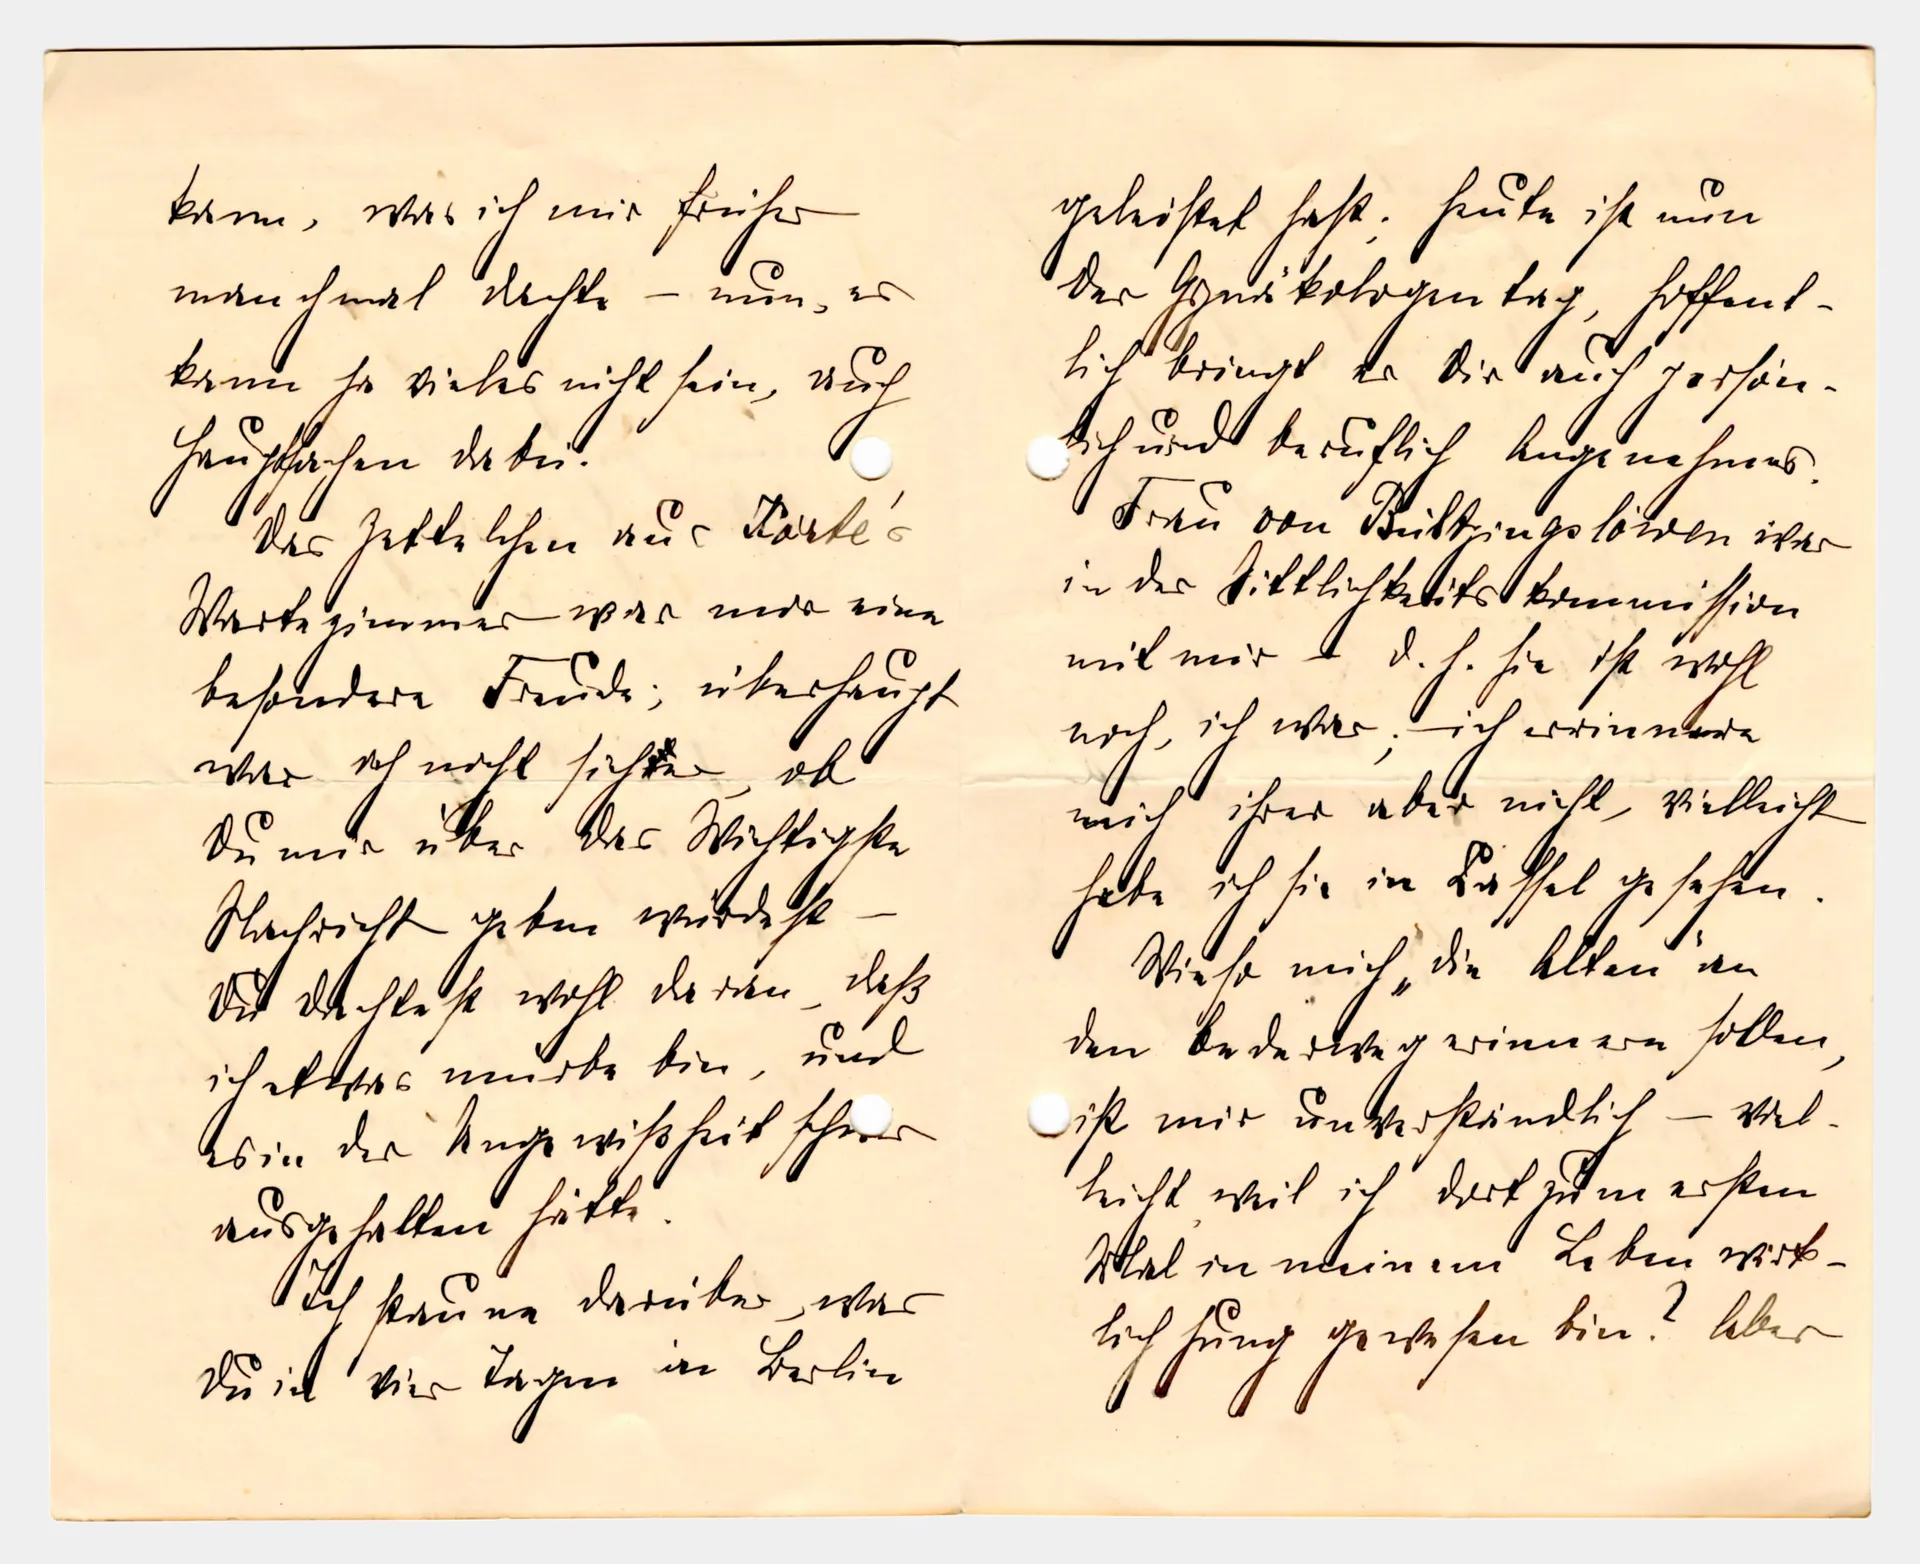 kann, was ich mir früher
manchmal dachte – nun, es
kann ja vieles nicht sein, auch
Hauptsachen dabei.
Das Zettelchen aus Körte's
Wartezimmer war mir eine
besondere Freude; überhaupt
war ich nicht sicher, ob
Du mir über das Wichtigste
Nachricht geben würdest –
Du dachtest wohl daran, daß
ich etwas mürbe bin, und
es in der Ungewißheit schwer
ausgehalten hätte.
Ich staune darüber, was
Du in vier Tagen in Berlin
geleistet hast. Heute ist nun
der Gynäkologentag, hoffent-
lich bringt er Dir auch persön-
lich und beruflich Angenehmes.
Frau von Bültzingslöwen war
in der Sittlichkeitskommission
mit mir – d. h. sie ist wohl
noch, ich war; – ich errinnere
mich ihrer aber nicht, vielleicht
habe ich sie in Cassel gesehen.
Wieso mich „die Alten" an
den Bederweg erinnern sollen,
ist mir unverständlich – viel-
leicht, weil ich dort zum ersten
Mal in meinem Leben wirk-
lich jung gewesen bin? Aber